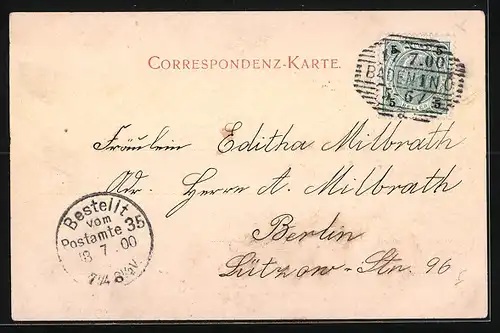 CORRESPONDENZ-KARTE.
5 5
7.00
BADEN 1 N.Ö
6/7
5 5
Fräulein Editha Milbrath
Adr. Herrn A. Milbrath
Berlin
Lützow-Str. 96
Bestellt
vom
Postamte 35
8 7 .00
7¼ 8½V.